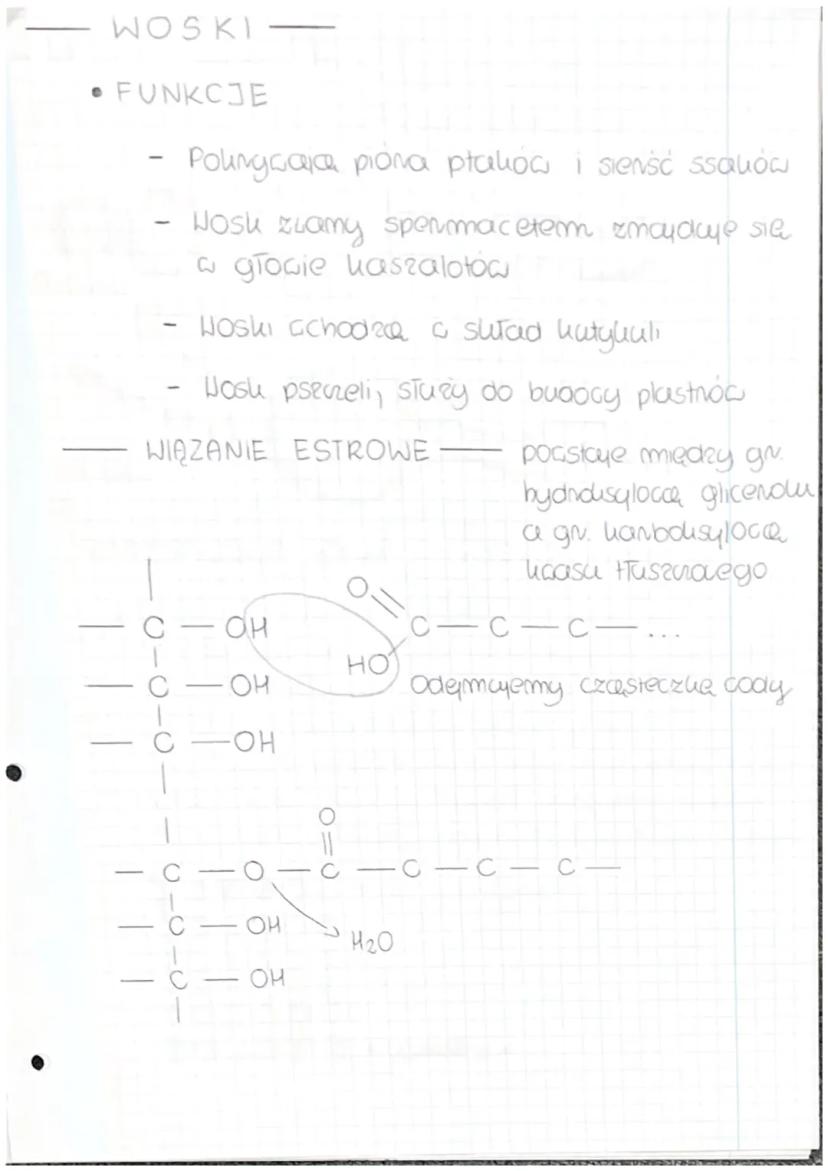 WOSKI
• FUNKCJE
- Pokrywają pióra ptaków i sierść ssaków
- Wosk zwany spermacetem znajduje się
w głowie kaszalotów
- Woski wchodzą w skład kutykuli
- Wosk pszczeli, służy do budowy plastrów
WIĄZANIE ESTROWE — powstaje między gr.
hydroksylową glicerolu
a gr. karboksylową
kwasu tłuszczowego
O
— C — OH C — C — C — ...
HO
— C — OH Odejmujemy cząsteczkę wody
— C — OH
O
— C — O — C — C — C — C —
— C — OH
H2O
— C — OH